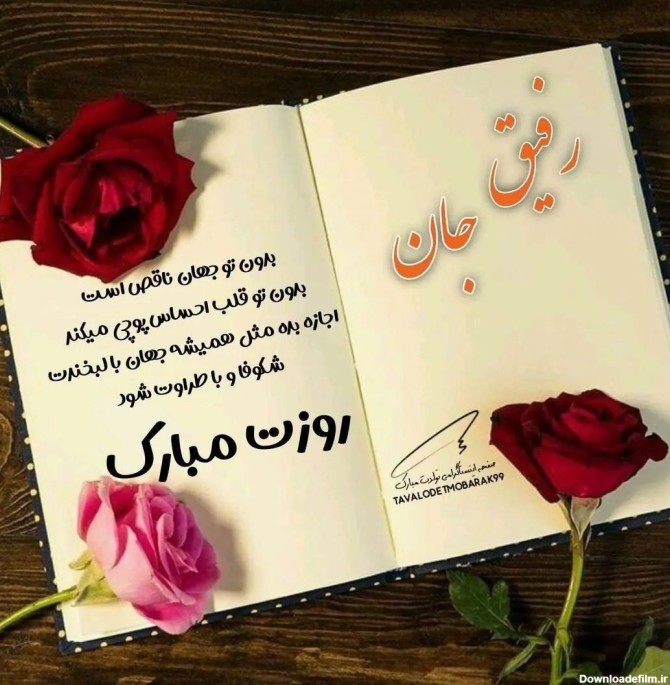 رفیق
جان
بدون تو جهان ناقص است
بدون تو قلب احساس پوچی میکند
اجازه بده مثل همیشه جهان با لبخندت
شکوفا و با طراوت شود
روزت مبارک
صفحه اینستاگرامی تولدت مبارک
TAVALODETMOBARAK99
Downloadefilm.ir